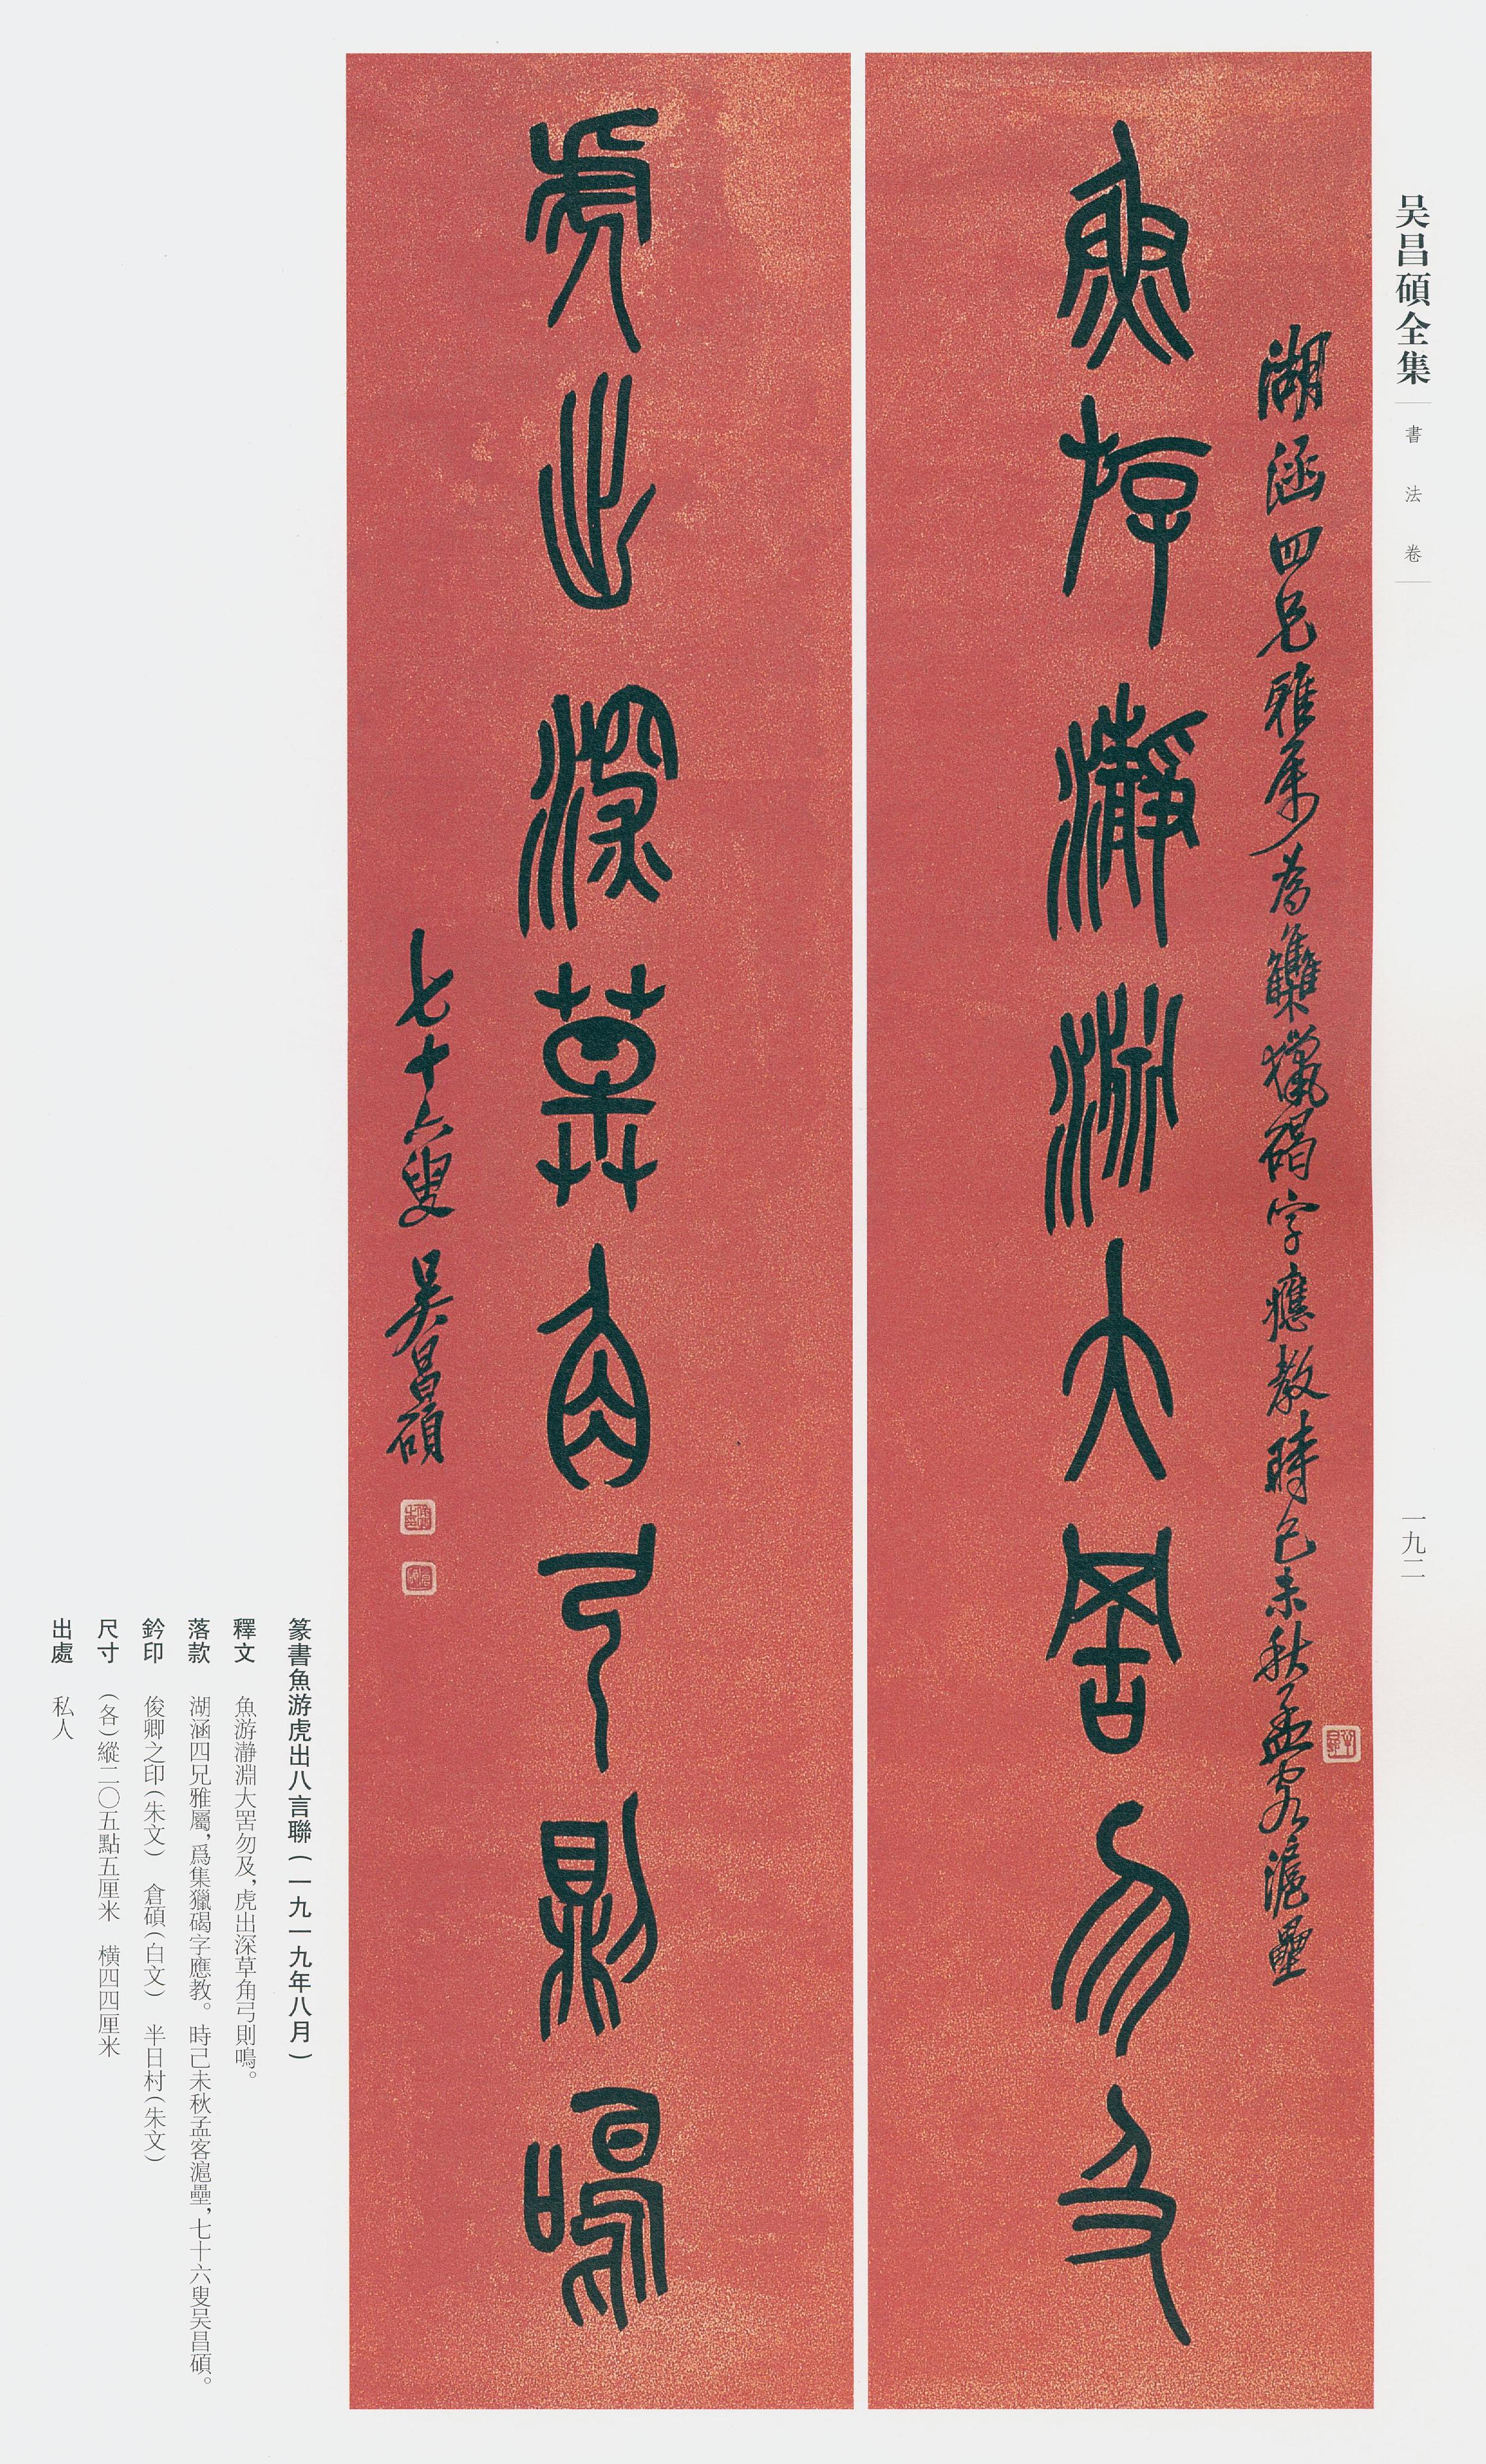 吴昌碩全集
書法卷
一九二
湖涵四兄雅属為集獵碣字應教時己未秋孟客滬壘
魚游瀞淵大罟勿及
虎出深草角弓則鳴
七十六叟吴昌碩
篆書魚游虎出八言聯(一九一九年八月)
釋文 魚游瀞淵大罟勿及,虎出深草角弓則鳴。
落款 湖涵四兄雅屬,爲集獵碣字應教。時己未秋孟客滬壘,七十六叟吴昌碩。
鈐印 俊卿之印(朱文) 倉碩(白文) 半日村(朱文)
尺寸 (各)縱二〇五點五厘米 横四四厘米
出處 私人